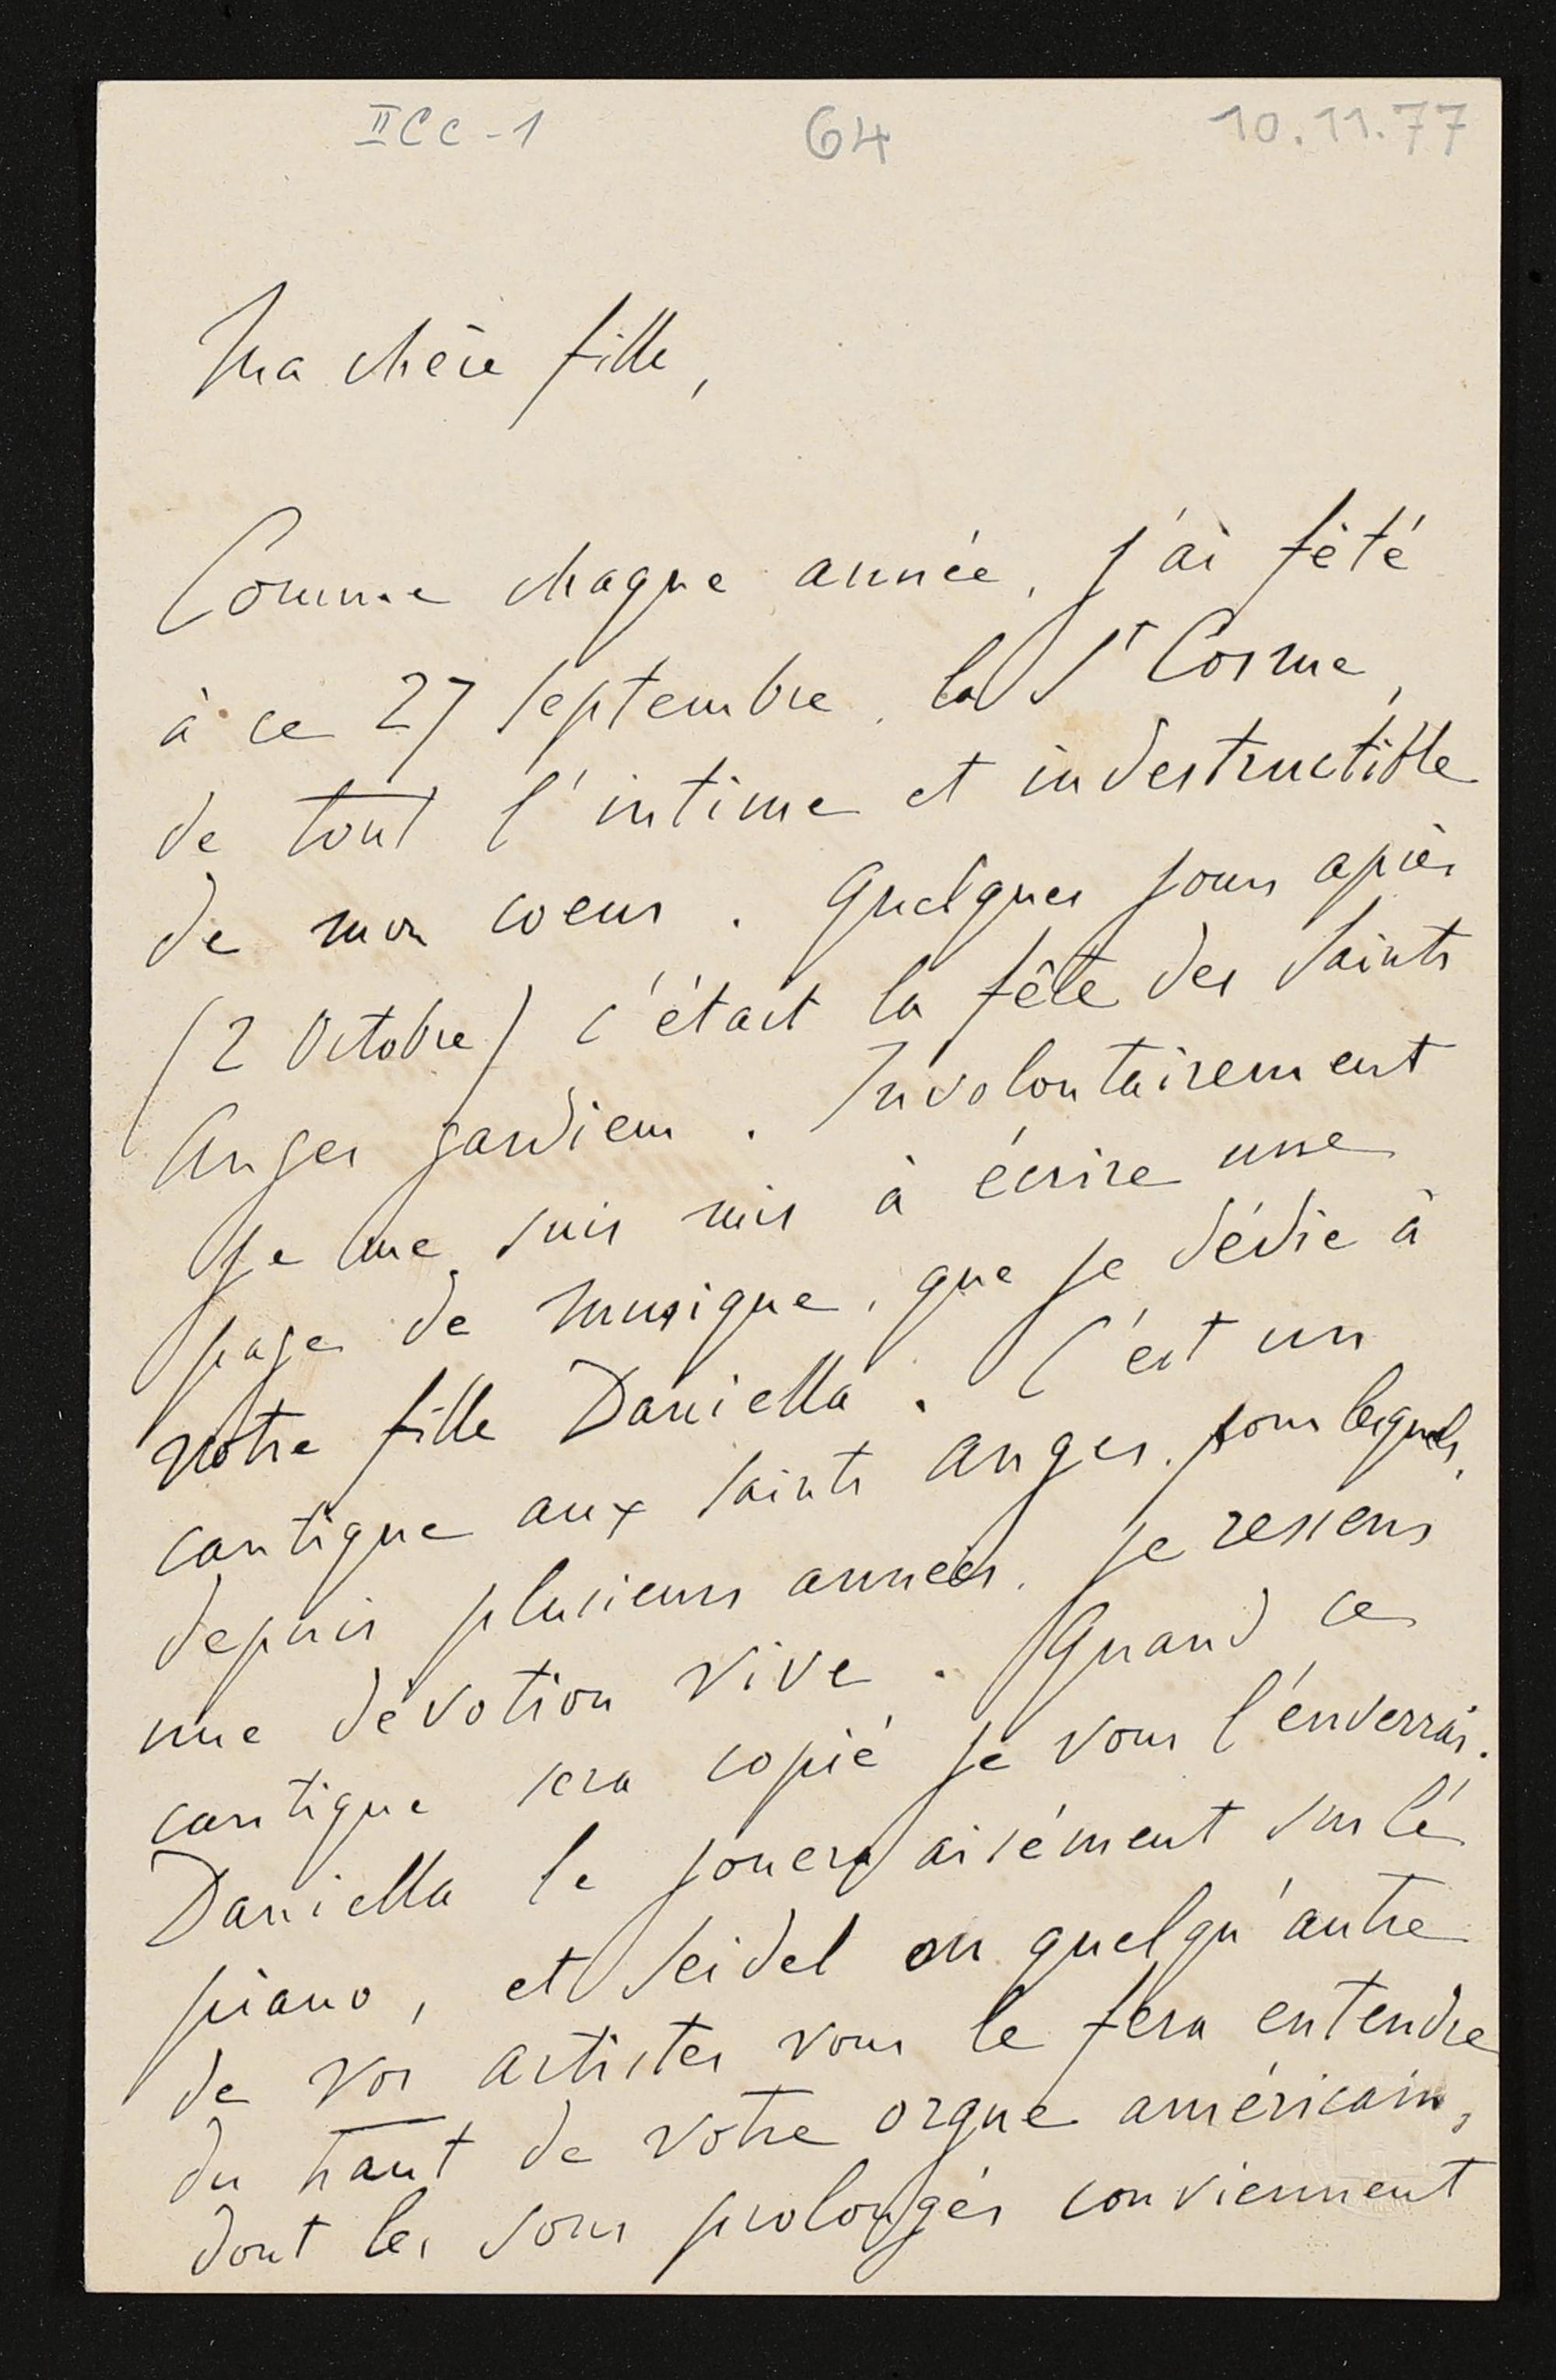 II C c - 1
64
10.11.77
Ma chère fille,
Comme chaque année, j'ai fêté
à ce 27 Septembre, la St Cosme,
de tout l'intime et indestructible
de mon coeur. Quelques jours après
(2 Octobre) c'était la fête des Saints
Anges gardiens. Involontairement
je me suis mis à écrire une
page de musique, que je dédie à
notre fille Daniella. C'est un
cantique aux Saints anges, pour lesquels,
depuis plusieurs années, je ressens
une dévotion vive. Quand ce
cantique sera copié je vous l'enverrai.
Daniella le jouera aisément sur le
piano, et Seidel ou quelqu'autre
de vos artistes vous le fera entendre
du haut de votre orgue américain,
dont les sons prolongés conviennent